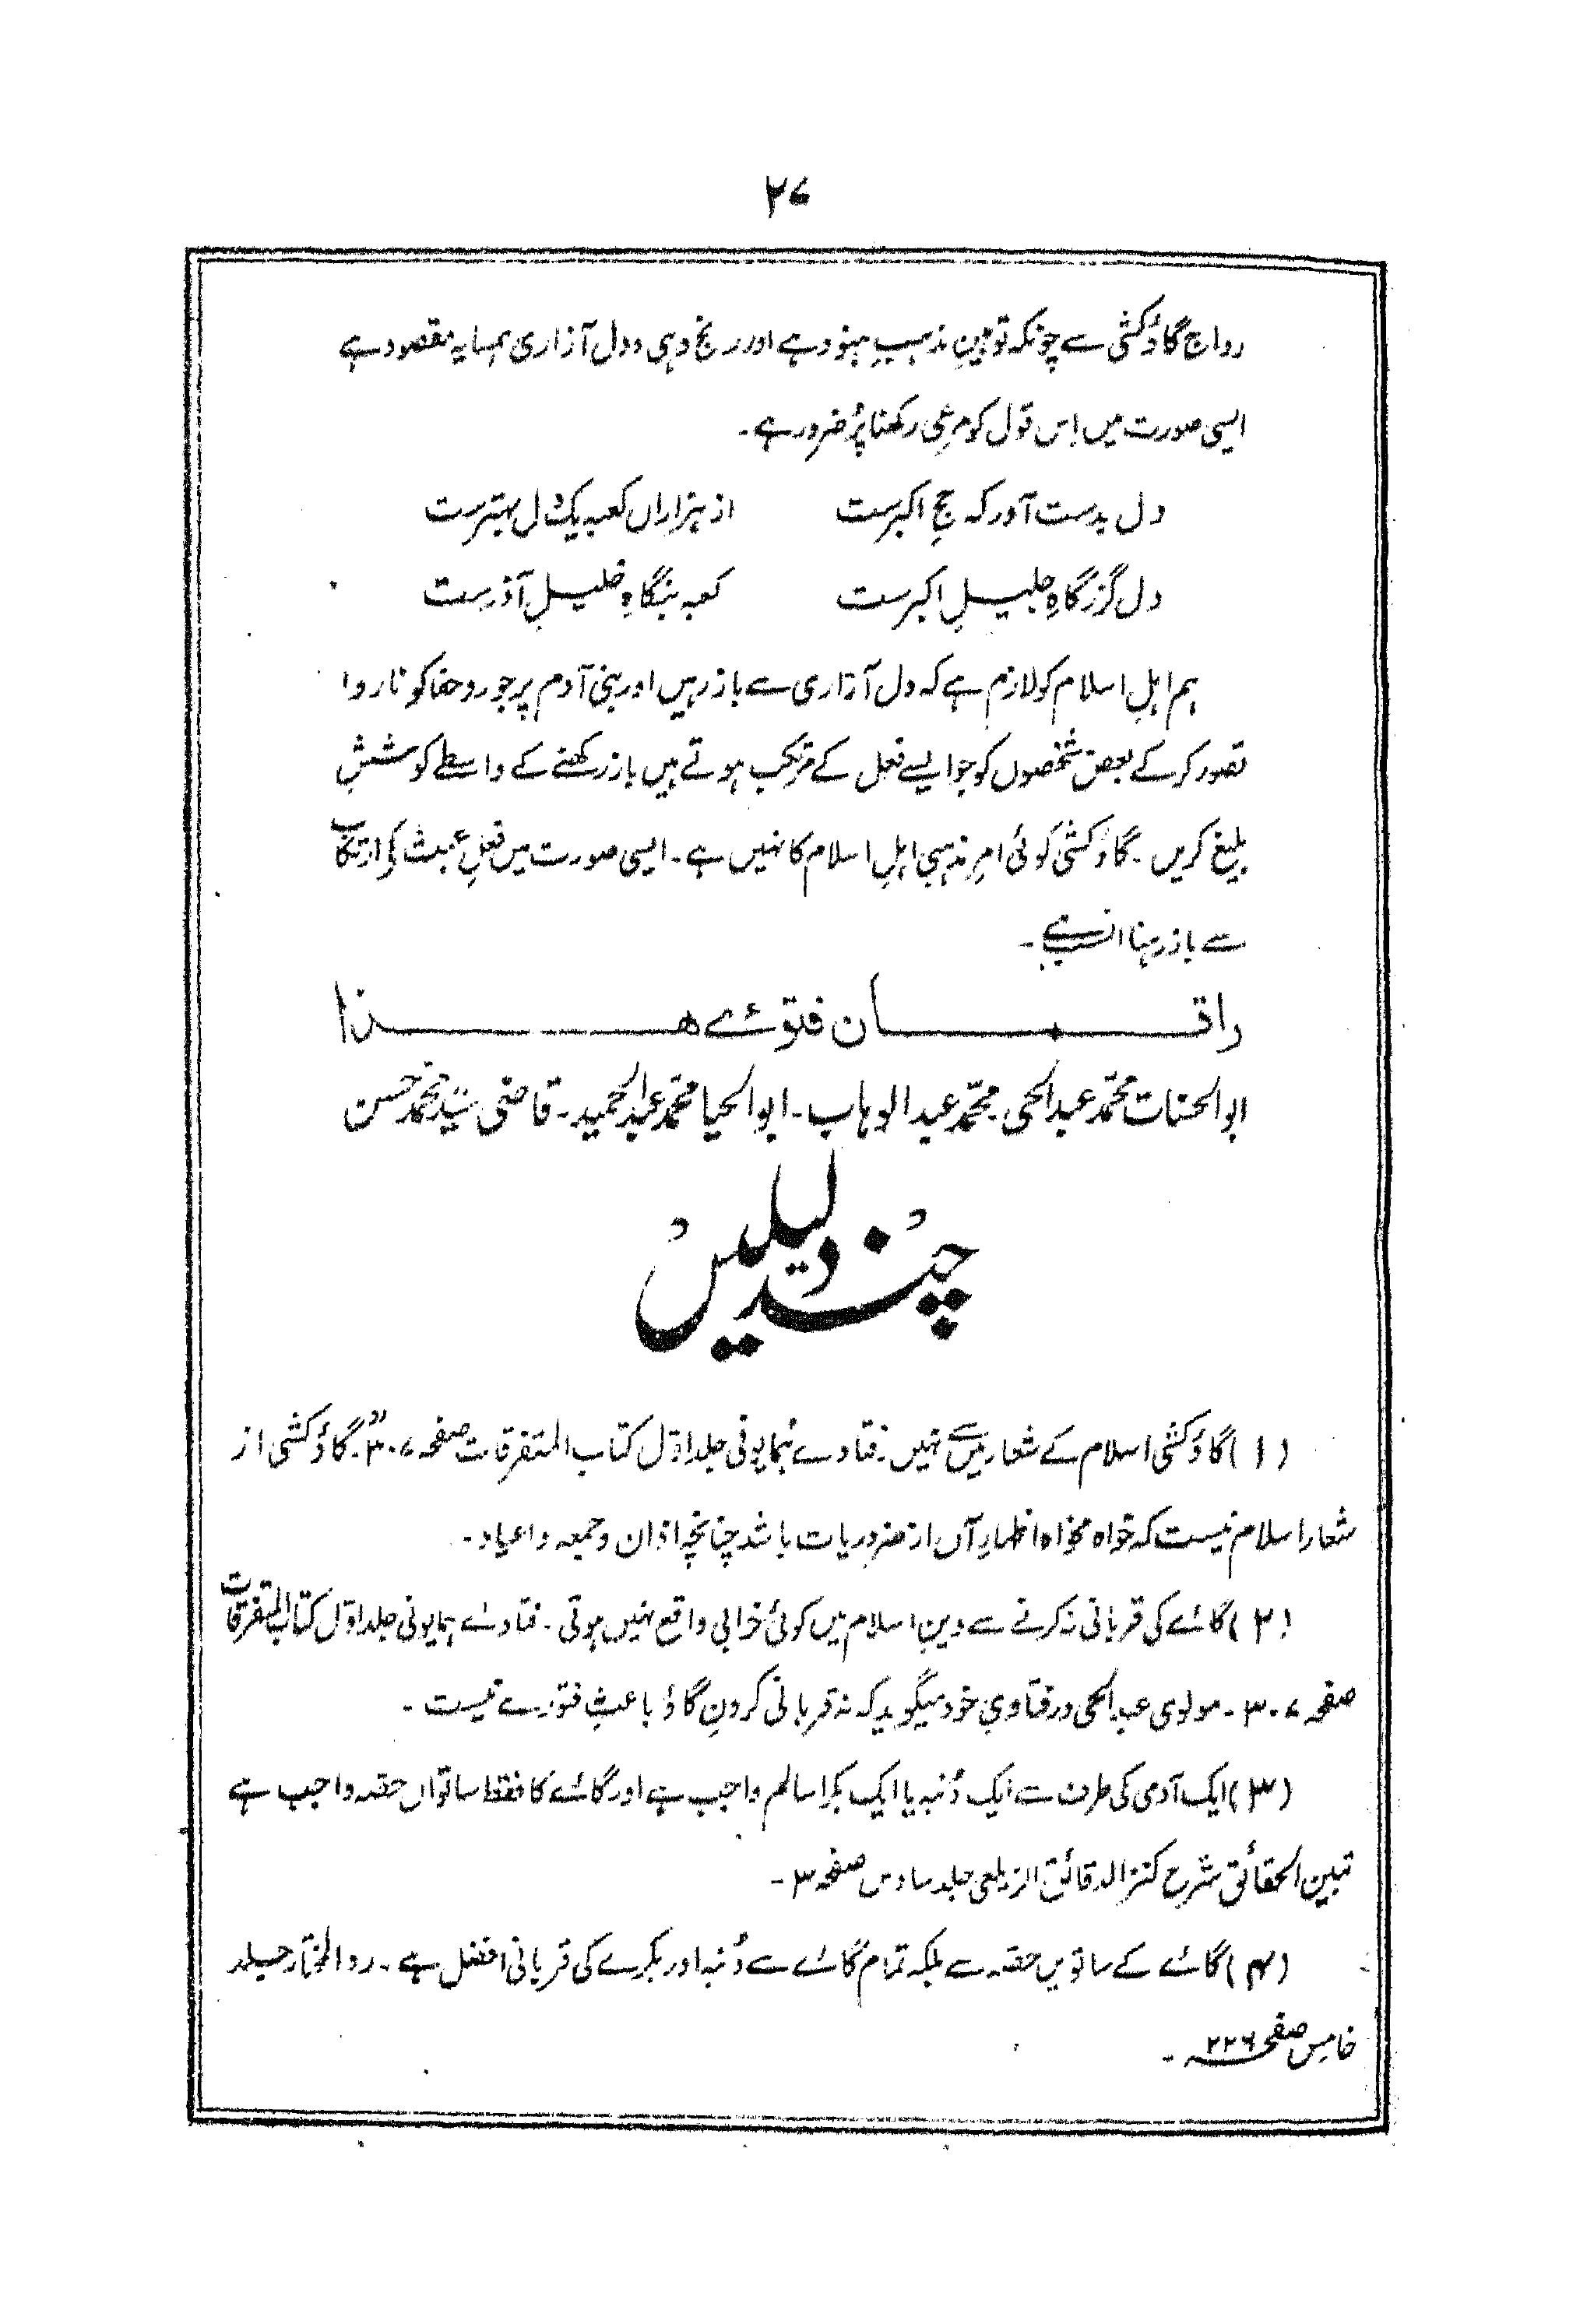 ۲۷
رواج گاؤکشی سے چونکہ توہینِ مذہبِ ہنود ہے اور رنج دہی و دل آزاری ہمسایہ مقصود ہے
ایسی صورت میں اِس قول کو مرعی رکھنا پُر ضرور ہے۔
دل بدست آور کہ حجِ اکبرست از ہزاراں کعبہ یک دل بہترست
دل گزرگاہِ جلیلِ اکبرست کعبہ بنگاہِ خلیلِ آذرست
ہم اہلِ اسلام کو لازم ہے کہ دل آزاری سے باز رہیں اور بنی آدم پر جور و جفا کو ناروا
تصور کر کے بعض شخصوں کو جو ایسے فعل کے مرتکب ہوتے ہیں باز رکھنے کے واسطے کوششِ
بلیغ کریں۔ گاؤکشی کوئی امرِ مذہبی اہلِ اسلام کا نہیں ہے۔ ایسی صورت میں فعلِ عبث کے ارتکاب
سے باز رہنا انسب ہے۔
راقمان فتوئے ھذا
ابوالحسنات محمّد عبدالحی۔ محمّد عبدالوہاب۔ ابوالحیا محمّد عبدالحمید۔ قاضی سیّد محمّد حسن
چند دلیلیں
(۱) گاؤکشی اسلام کے شعار میں سے نہیں۔ فتاوے ہمایونی جلد اوّل کتاب المتفرقات صفحہ ۳۰۷۔ "گاؤکشی از
شعار اسلام نیست کہ خواہ مخواہ اظہارِ آں از ضروریات باشد چنانچہ اذان و جمعہ و اعیاد۔
(۲) گائے کی قربانی نہ کرنے سے دینِ اسلام میں کوئی خرابی واقع نہیں ہوتی۔ فتاوئے ہمایونی جلد اوّل کتاب المتفرقات
صفحہ ۳۰۷۔ مولوی عبدالحی در فتاوی خود میگوید کہ نہ قربانی کردنِ گاؤ باعثِ فتورے نیست۔
(۳) ایک آدمی کی طرف سے ایک دُنبہ یا ایک بکرا سالم واجب ہے اور گائے کا فقط ساتواں حصّہ واجب ہے
تبین الحقائق شرح کنز الدقائق الزیلعی جلد سادس صفحہ ۳۔
(۴) گائے کے ساتویں حصّہ سے بلکہ تمام گائے سے دُنبہ اور بکرے کی قربانی افضل ہے۔ رد المختار جلد
خامس صفحہ ۲۲۶۔